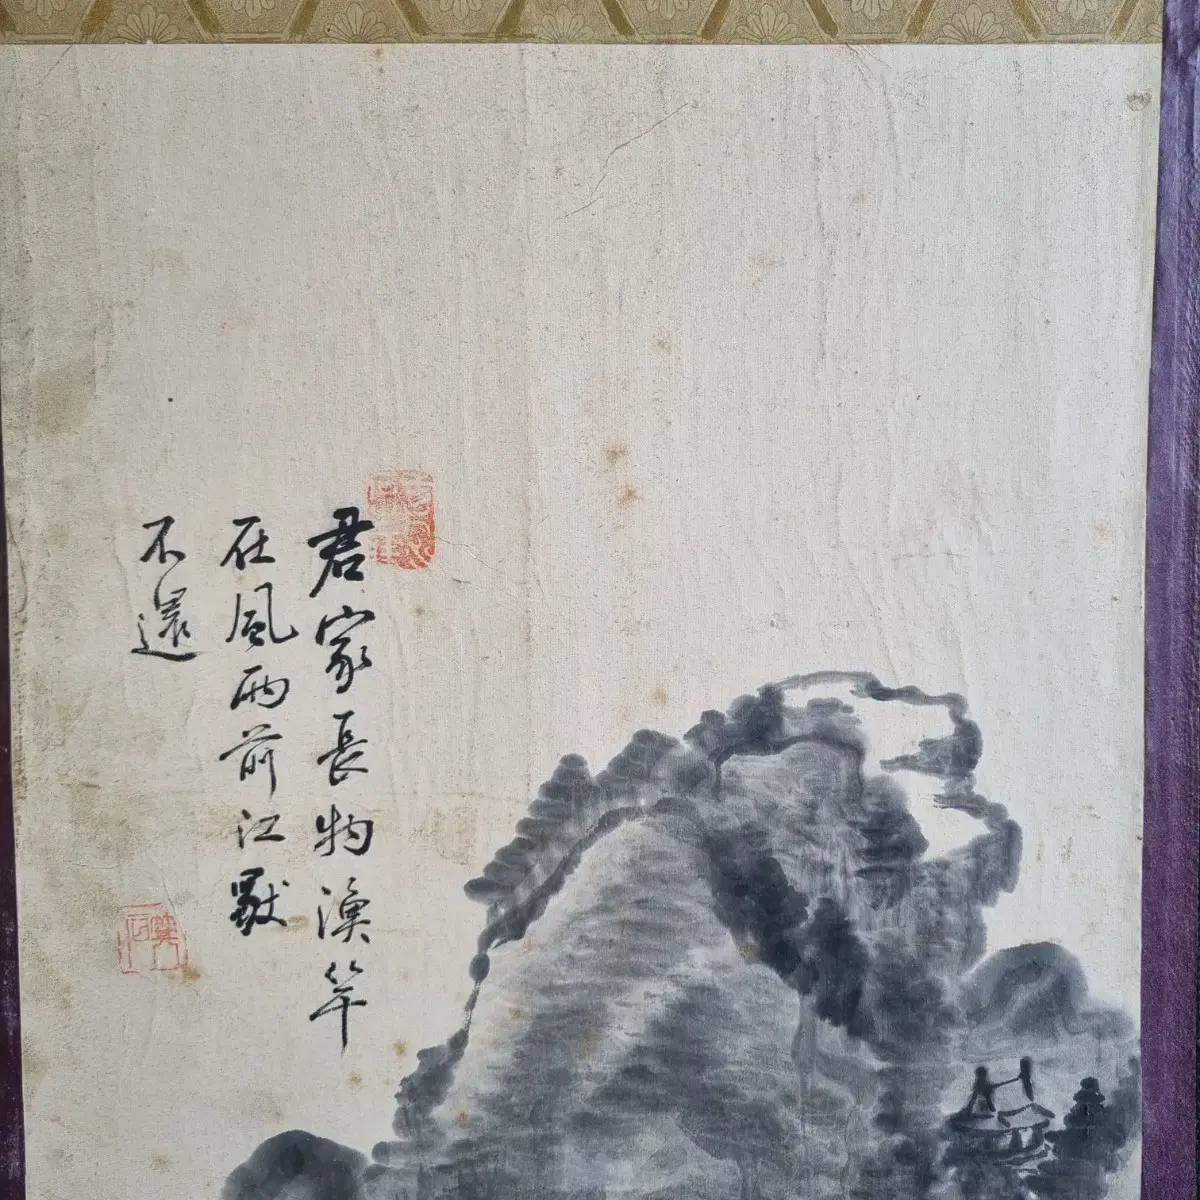 君家長物漁竿
在風雨前江獣
不還